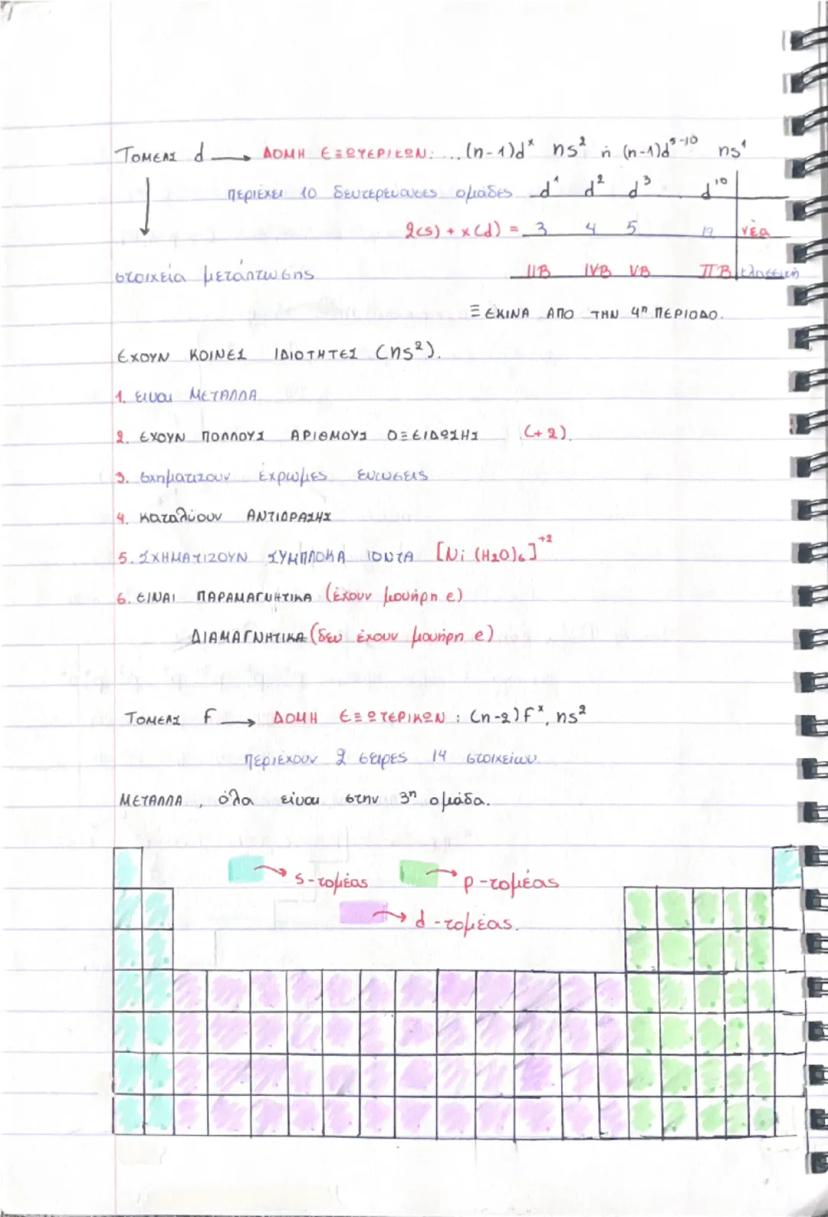 ΤΟΜΕΑΣ d → ΔΟΜΗ ΕΞΩΤΕΡΙΚΩΝ: ...(n-1)dˣ ns² ή (n-1)d⁵⁻¹⁰ ns¹
περιέχει 10 δευτερεύουσες ομάδες d¹ d² d³ d¹⁰
2(s) + x(d) = 3 4 5 νέα
στοιχεία μετάπτωσης IIB IVB VB IIB κλασσική
ΞΕΚΙΝΑ ΑΠΟ ΤΗΝ 4η ΠΕΡΙΟΔΟ.
ΕΧΟΥΝ ΚΟΙΝΕΣ ΙΔΙΟΤΗΤΕΣ (ns²).
1. ειναι ΜΕΤΑΛΛΑ
2. ΕΧΟΥΝ ΠΟΛΛΟΥΣ ΑΡΙΘΜΟΥΣ ΟΞΕΙΔΩΣΗΣ (+2).
3. σχηματιζουν έχρωμες ενωσεις
4. καταλύουν ΑΝΤΙΔΡΑΣΗΣ
5. ΣΧΗΜΑΤΙΖΟΥΝ ΣΥΜΠΛΟΚΑ ΙΟΝΤΑ [Ni(H2O)6]⁺²
6. ΕΙΝΑΙ ΠΑΡΑΜΑΓΝΗΤΙΚΑ (έχουν μονήρη e)
ΔΙΑΜΑΓΝΗΤΙΚΑ (δεν έχουν μονήρη e)
ΤΟΜΕΑΣ F → ΔΟΜΗ ΕΞΩΤΕΡΙΚΩΝ : (n-2)Fˣ, ns²
περιέχουν 2 σειρες 14 στοιχείων.
ΜΕΤΑΛΛΑ, όλα είναι στην 3η ομάδα.
→ s-τομέας → p-τομέας
→ d-τομέας.